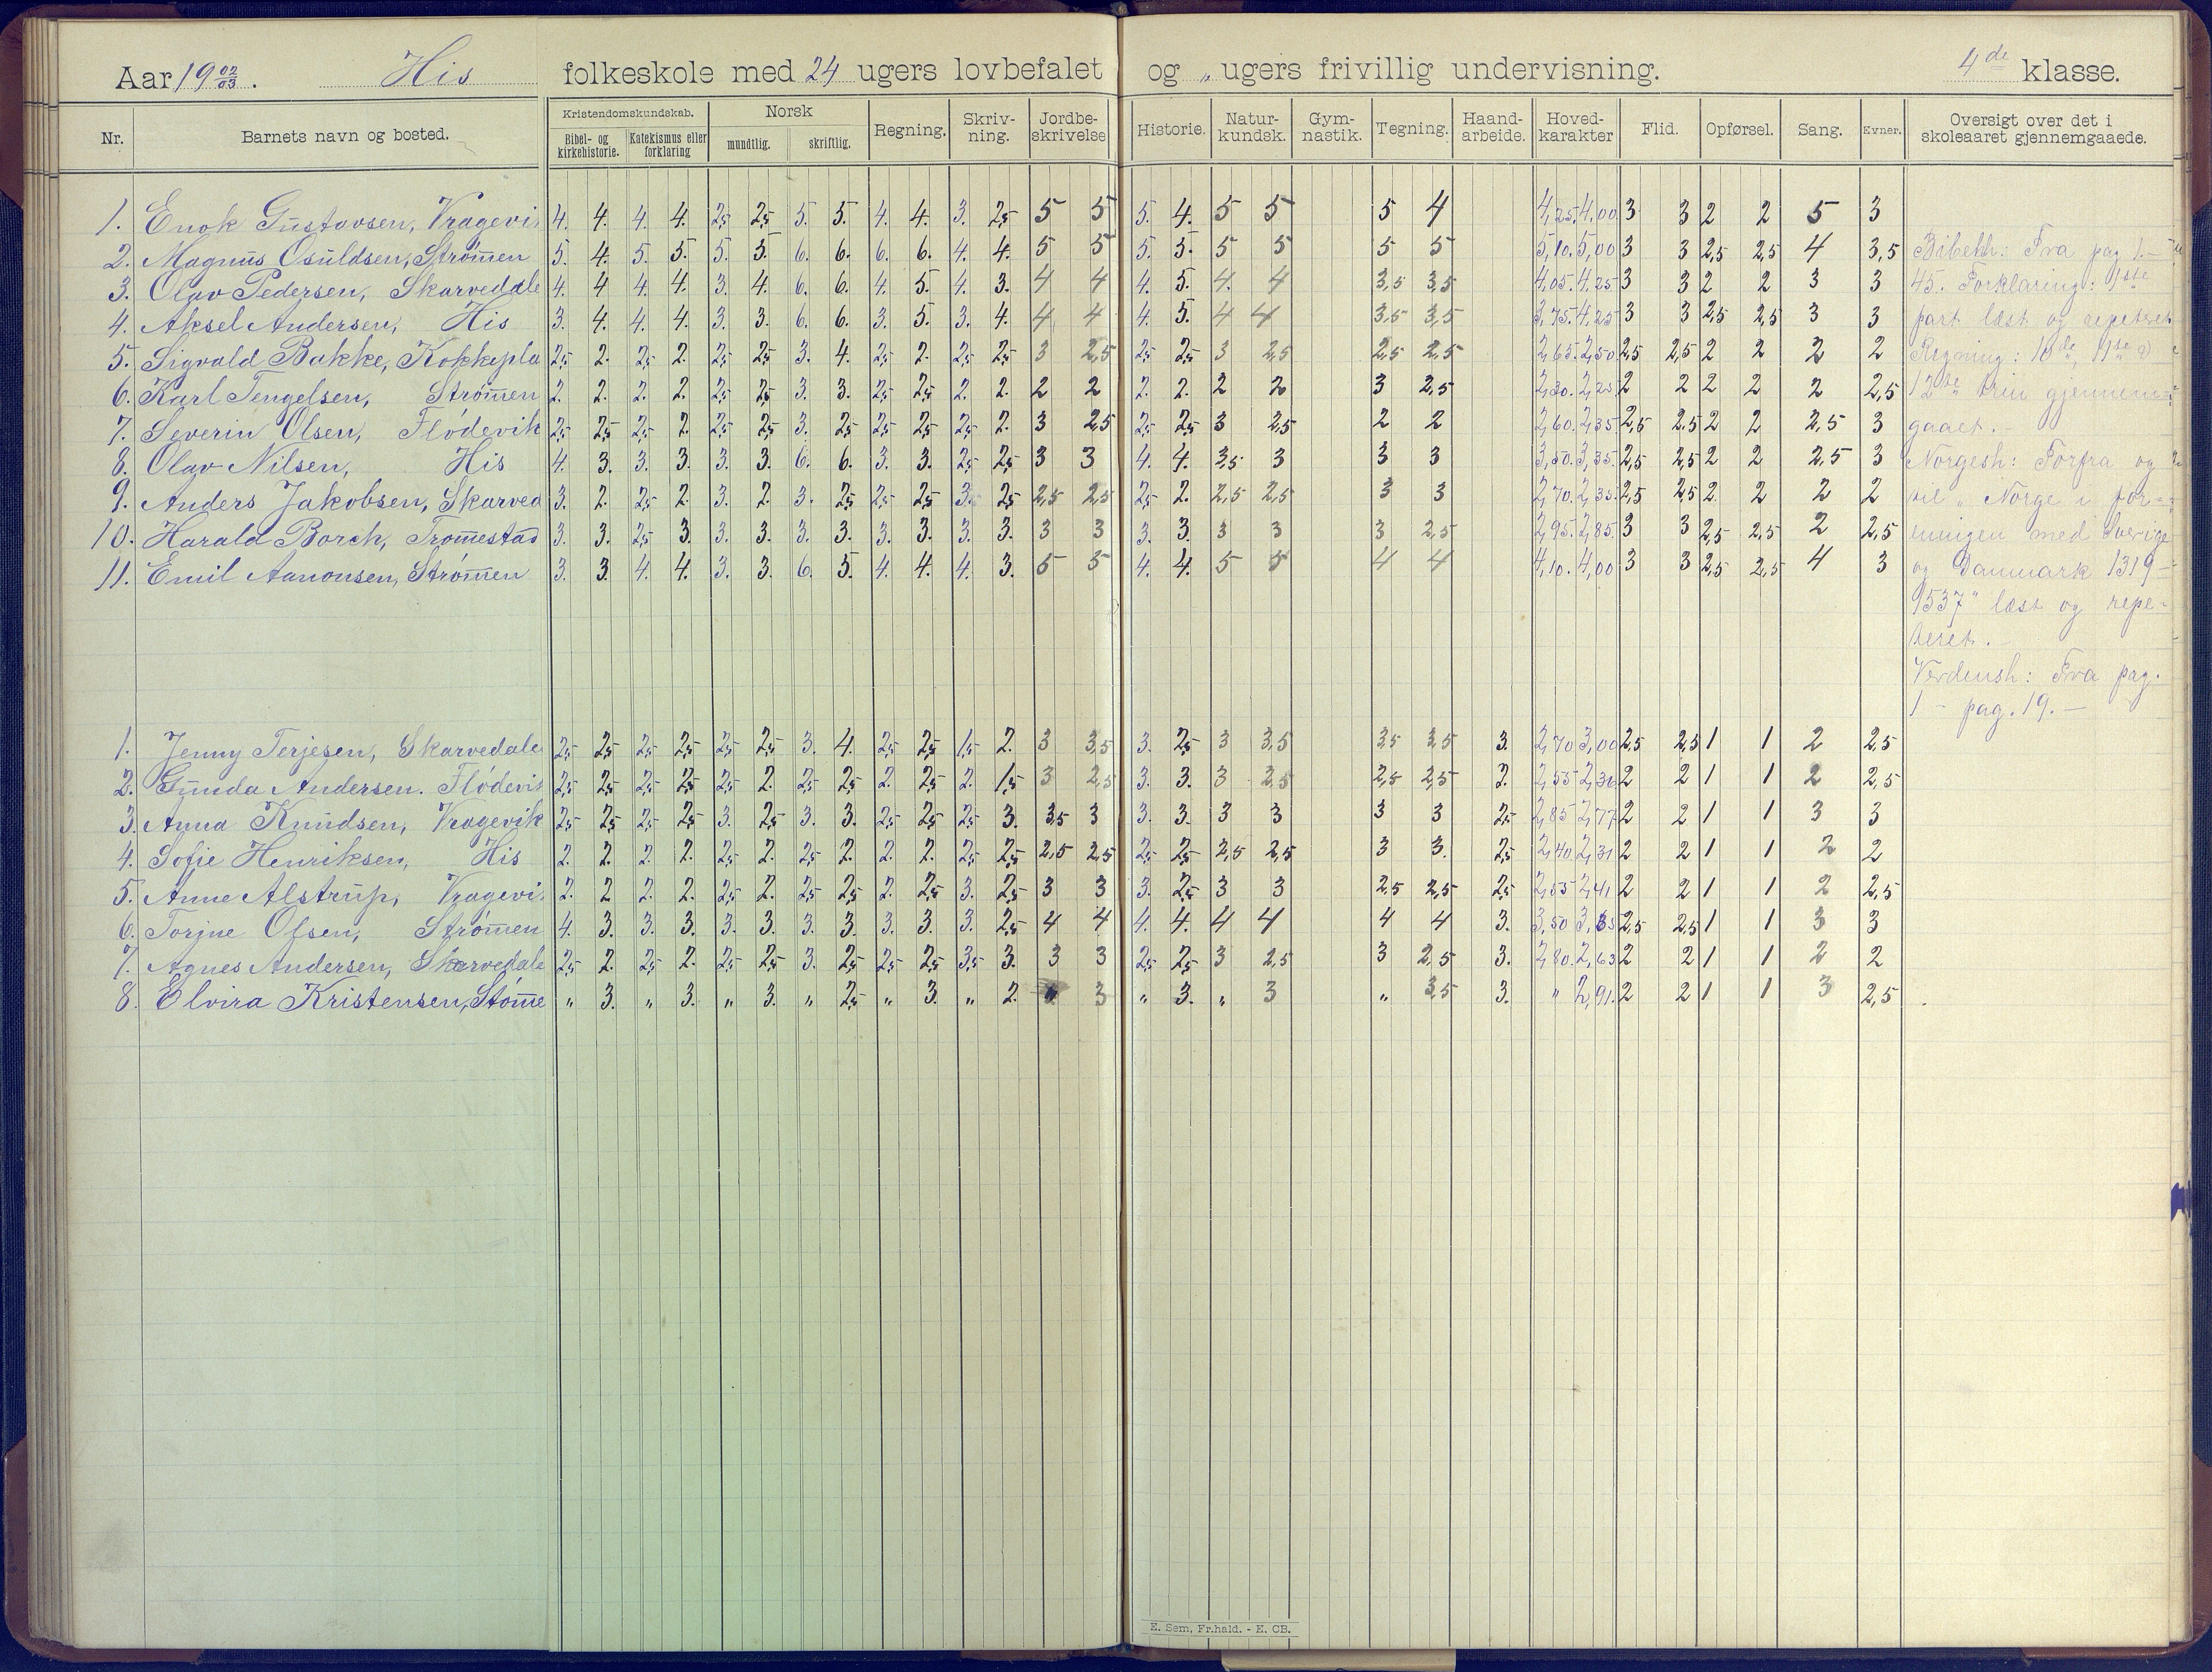 Aar 19 02/03. His folkeskole med 24 ugers lovbefalet og „ ugers frivillig undervisning. 4de klasse.
Nr. Barnets navn og bosted. Kristendomskundskab. Bibel- og kirkehistorie. Katekismus eller forklaring Norsk mundtlig. skriftlig. Regning. Skriv-ning. Jordbe-skrivelse Historie. Natur-kundsk. Gym-nastik. Tegning. Haand-arbeide. Hoved-karakter Flid. Opførsel. Sang. Evner. Oversigt over det i skoleaaret gjennemgaaede.
1. Enok Gustavsen, Vragevi 4. 4. 4. 4. 2,5 2,5 5. 5. 4. 4. 3. 2,5 5 5 5. 4. 5 5 5 4 4,25. 4,00. 3 3 2 2 5 3
2. Magnus Osuldsen, Strømen 5. 4. 5. 5. 5. 5. 6. 6. 6. 6. 4. 4. 5 5 5. 5. 5 5 5 5 5,10. 5,00 3 3 2,5 2,5 4 3,5 Bibelh: Fra pag 1.-
3. Olav Pedersen, Skarvedale 4. 4 4. 4. 3. 4. 6. 6. 4. 5. 4. 3. 4 4 4. 5. 4. 4 3,5 3,5 4,05. 4,25 3 3 2 2 3 3 45. Forklaring: 1ste
4. Aksel Andersen, His 3. 4. 4. 4. 3. 3. 6. 6. 3. 5. 3. 4. 4 4 4. 5. 4 4 3,5 3,5 3,75. 4,25 3 3 2,5 2,5 3 3 part læst og repeteret
5. Sigvald Bakke, Kokkepla 2,5 2. 2,5 2. 2,5 2,5 3. 4. 2,5 2. 2,5 2,5 3 2,5 2,5 2,5 3 2,5 2,5 2,5 2,65. 2,50 2,5 2,5 2 2 2 2 Regning: 10de, 11te
6. Karl Tengelsen, Strømen 2. 2. 2. 2. 2,5 2,5 3. 3. 2,5 2,5 2. 2. 2 2 2. 2. 2 2 3 2,5 2,30. 2,25 2 2 2 2 2 2,5 12te trin gjennem-
7. Severin Olsen, Flødevik 2,5 2,5 2,5 2. 2,5 2,5 3. 2,5 2,5 2,5 2,5 2. 3 2,5 2,5 2,5 3 2,5 2 2 2,60. 2,35. 2,5 2,5 2 2 2,5 3 gaaet.-
8. Olav Nilsen, His 4. 3. 3. 3. 3. 3. 6. 6. 3. 3. 2,5 2,5 3 3 4. 4. 3,5 3 3 3 3,50. 3,35. 2,5 2,5 2 2 2,5 3 Norgesh: Forfra og
9. Anders Jakobsen, Skarved 3. 2. 2,5 2. 3. 2. 3. 2,5 2,5 2,5 3. 2,5 2,5 2,5 2,5 2. 2,5 2,5 3 3 2,70. 2,35. 2,5 2,5 2 2 2 2 til „Norge i for-
10. Harald Borch, Tromestad 3. 3. 2,5 3. 3. 3. 3. 3. 3. 3. 3. 3. 3 3 3. 3. 3 3 3 2,5 2,95. 2,85. 3 3 2,5 2,5 2 2,5 eningen med Sverige
11. Emil Aanonsen, Strømen 3. 3. 4. 4. 3. 3. 6. 5. 4. 4. 4. 3. 5 5 4. 4. 5 5 4 4 4,10. 4,00 3 3 2,5 2,5 4 3 og Danmark 1319-
1537" læst og repe-
teret.-
Verdensh: Fra pag.
1 - pag. 19.-
1. Jenny Terjesen, Skarvedale 2,5 2,5 2,5 2,5 2,5 2,5 3. 4. 2,5 2,5 1,5 2. 3 3,5 3. 2,5 3 3,5 3,5 3,5 3. 2,70 3,00 2,5 2,5 1 1 2 2,5
2. Gunda Andersen. Flødevi 2,5 2,5 2,5 2,5 2,5 2. 2,5 2,5 2. 2,5 2. 1,5 3 2,5 3. 3. 3 2,5 2,5 2,5 2. 2,55 2,36 2 2 1 1 2 2,5
3. Anna Knudsen, Vragevik 2,5 2,5 2,5 2,5 3. 2,5 3. 3. 2,5 2,5 2,5 3. 3,5 3 3. 3. 3 3 3 3 2,5 2,85 2,77 2 2 1 1 3 3
4. Sofie Henriksen, His 2. 2. 2. 2. 2,5 2. 2,5 2. 2. 2. 2,5 2,5 2,5 2,5 2,5 2,5 2,5 2,5 3 3. 2,5 2,40 2,31 2 2 1 1 2 2
5. Anne Alstrup, Vragevi 2. 2 2. 2. 2,5 2. 2,5 2,5 2. 2,5 3. 2,5 3 3 3. 2,5 3 3 2,5 2,5 2,5 2,55 2,41 2 2 1 1 2 2,5
6. Torjne Olsen, Strømen 4. 3. 3. 3. 3. 3. 3. 3. 3. 3. 3. 2,5 4 4 4. 4. 4 4 4 4 3. 3,50 2,5 2,5 1 1 3 3
7. Agnes Andersen, Skarvedale 2,5 2. 2,5 2. 2,5 2,5 3. 2,5 2,5 2,5 3,5 3. 3 3 2,5 2,5 3 2,5 3 2,5 3. 2,80. 2,63 2 2 1 1 2 2
8. Elvira Kristensen, Stømme „ 3. „ 3. „ 3. „ 2,5 „ 3. „ 2. 3 „ 3. „ 3 „ 3,5 3. „ 2,91. 2 2 1 1 3 2,5
E. Sem, Fr.hald. - E. CB.